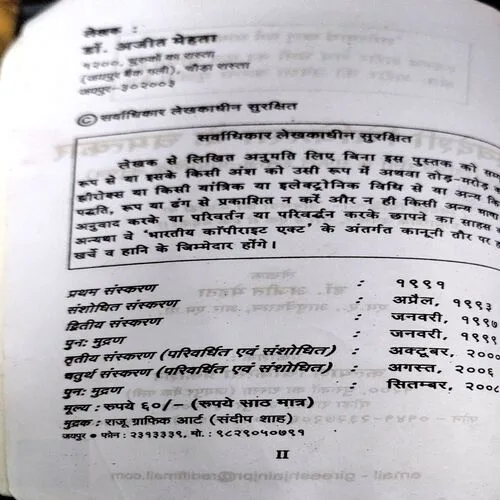 लेखक :
डॉ. अजीत मेहता
१२००, चुरुकों का रास्ता
(जयपुर बैंक गली), चौड़ा रास्ता
जयपुर-३०२००३
© सर्वाधिकार लेखकाधीन सुरक्षित
सर्वाधिकार लेखकाधीन सुरक्षित
लेखक से लिखित अनुमति लिए बिना इस पुस्तक को
रूप से या इसके किसी अंश को उसी रूप में अथवा तोड़-मरोड़
झैरोक्स या किसी यांत्रिक या इलेक्ट्रोनिक विधि से या अन्य
पद्धति, रूप या ढंग से प्रकाशित न करें और न ही किसी अन्य
अनुवाद करके या परिवर्तन या परिवर्द्धन करके छापने का साहस
अन्यथा वे 'भारतीय कॉपीराइट एक्ट' के अंतर्गत कानूनी तौर पर
खर्चे व हानि के जिम्मेदार होंगे।
प्रथम संस्करण : १९९१
संशोधित संस्करण : अप्रैल, १९९३
द्वितीय संस्करण : जनवरी, १९९७
पुनः मुद्रण : जनवरी, १९९९
तृतीय संस्करण (परिवर्धित एवं संशोधित) : अक्टूबर,
चतुर्थ संस्करण (परिवर्धित एवं संशोधित) : अगस्त, २००६
पुनः मुद्रण : सितम्बर, २००८
मूल्य : रुपये ६०/- (रुपये सांठ मात्र)
मुद्रक : राजू ग्राफिक आर्ट (संदीप शाह)
जयपुर • फोन : २३१३३३९, मो. : ९८२९०५०७९१
II